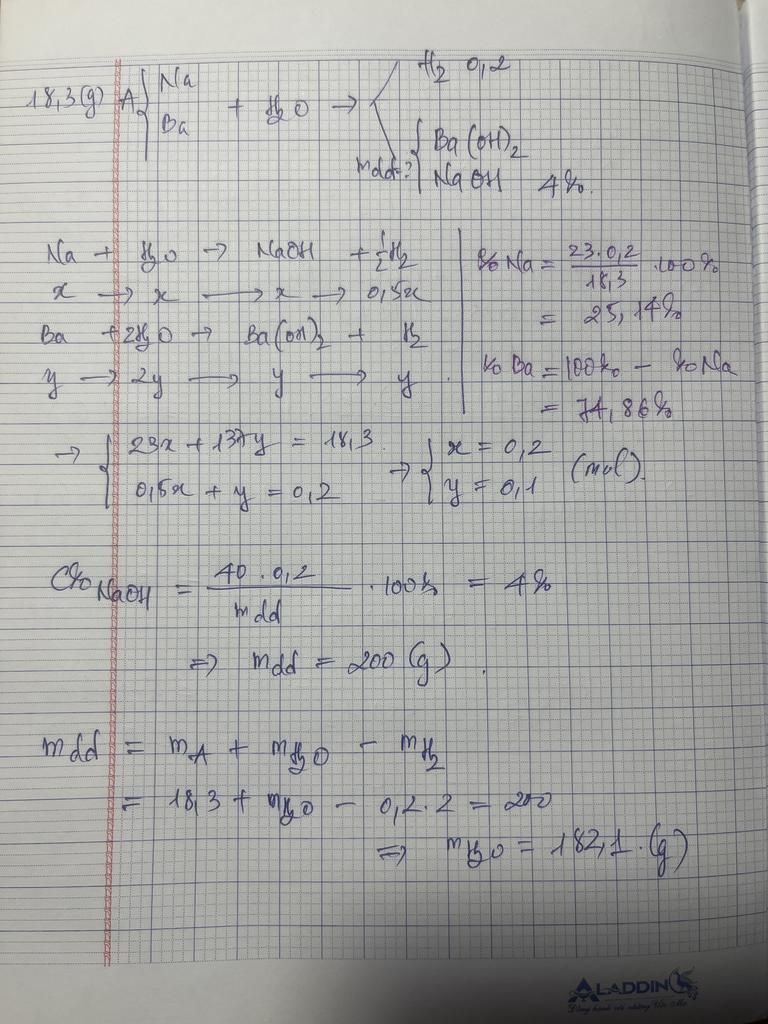 18,3(g) A { Na Ba + H2O → H2 0,2
mdd=? { Ba(OH)2 NaOH 4%.
Na + H2O → NaOH + 1/2 H2
x → x → x → 0,5x
Ba + 2H2O → Ba(OH)2 + H2
y → 2y → y → y.
%Na = 23.0,2 / 18,3 .100%
= 25,14%
% Ba = 100% - %Na
= 74,86%
→ { 23x + 137y = 18,3 → { x = 0,2
0,5x + y = 0,2 y = 0,1 (mol).
C%NaOH = 40.0,2 / mdd . 100% = 4%
⇒ mdd = 200 (g).
mdd = mA + mH2O - mH2
= 18,3 + mH2O - 0,2.2 = 200
⇒ mH2O = 182,1.(g)
ALADDIN